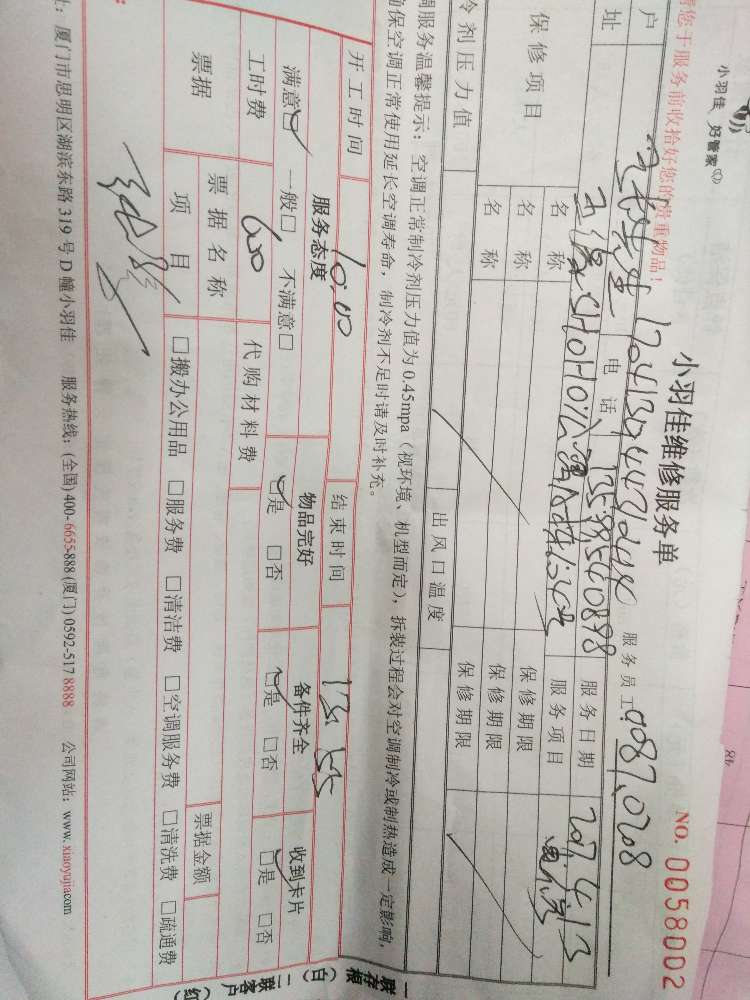 小羽佳 好管家
小羽佳维修服务单
NO. 0058002
请您于服务前收拾好您的贵重物品!
户
服务员工 0087.0208
址
电话 13599540898
服务日期 2017.4.13
保修项目
名称
服务项目
名称
保修期限
名称
保修期限
冷剂压力值
出风口温度
保修期限
调服务温馨提示：空调正常制冷剂压力值为0.45mpa（视环境、机型而定），拆装过程会对空调制冷或制热造成一定影响，
确保空调正常使用延长空调寿命，制冷剂不足时请及时补充。
开工时间 10:00
结束时间
服务态度
物品完好
备件齐全
收到卡片
满意☑ 一般□ 不满意□
☑是 □否
☑是 □否
☑是 □否
工时费 600
代购材料费
票据
票据名称
票据金额
项目
□搬办公用品 □服务费 □清洁费 □空调服务费 □清洗费 □疏通费
址：厦门市思明区湖滨东路319号D幢小羽佳 服务热线：(全国) 400-6655-888 (厦门) 0592-517 8888 公司网站：www.xiaoyujia.com
一联存根（白）二联客户（红）